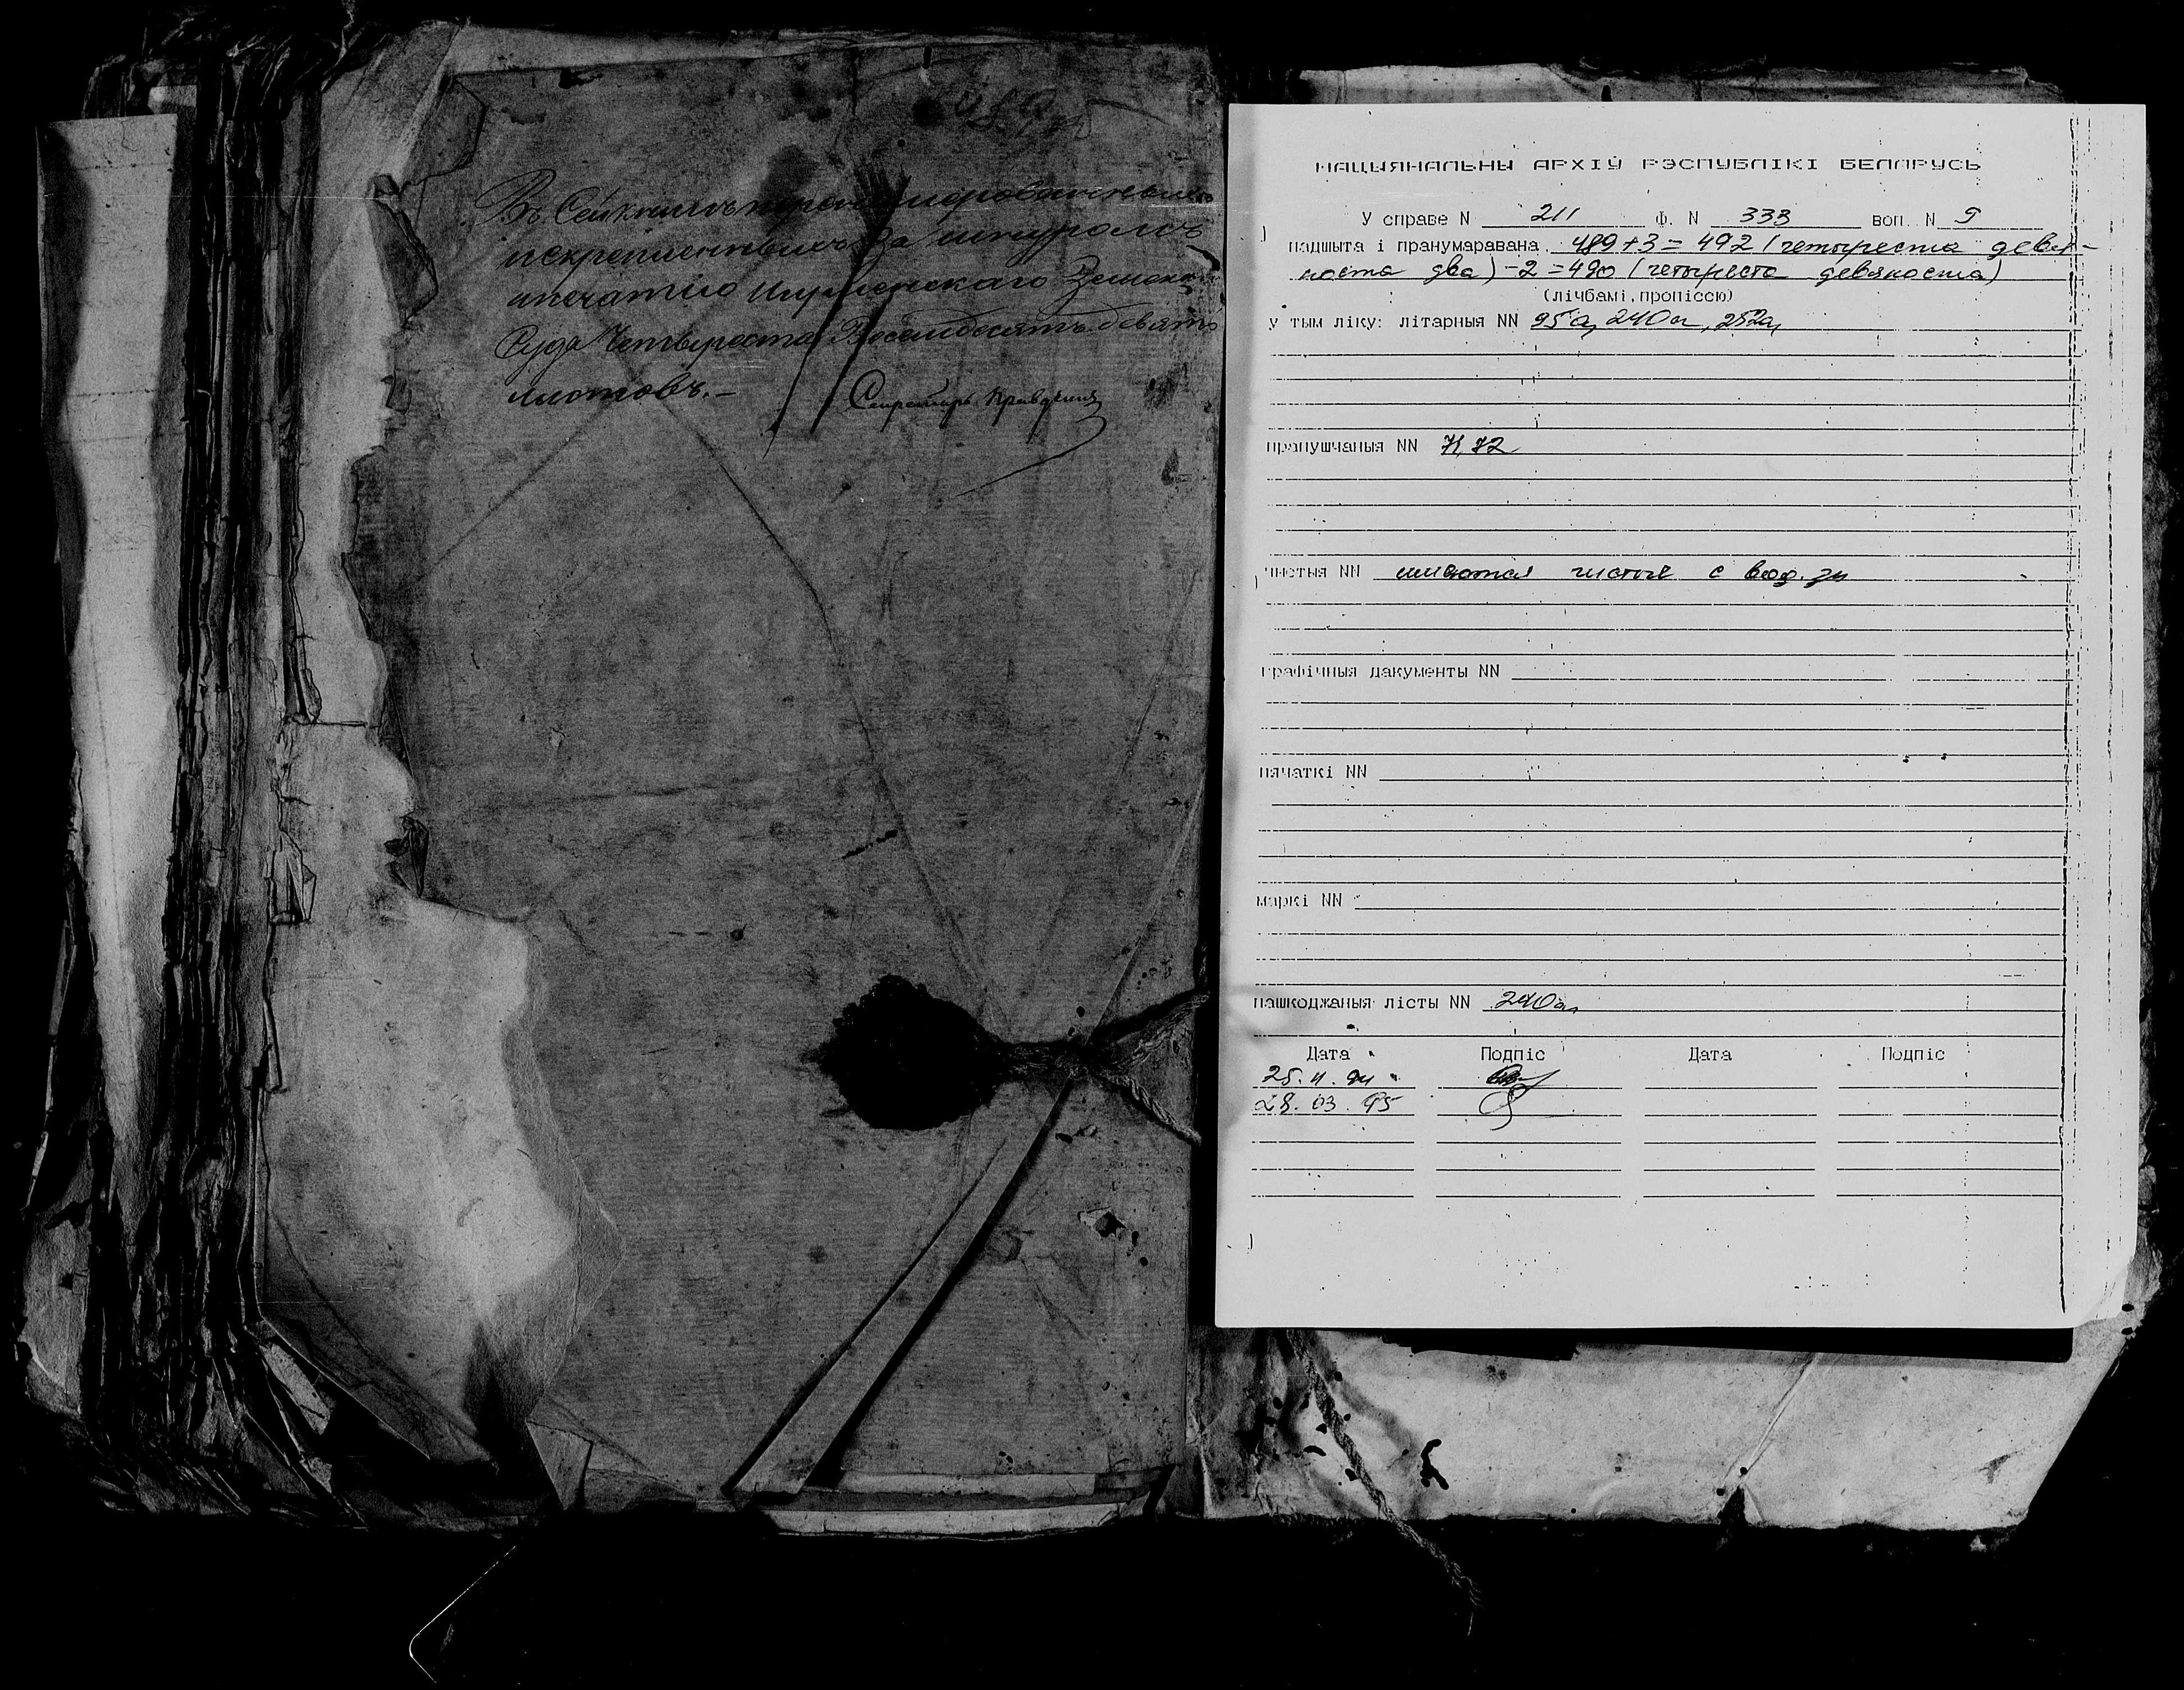 489
Въ Сей книгѣ перенумерованныхъ
искрепленныхъ за шнуромъ
ипечатью Игуменскаго Земскаго
Суда Четыреста Восемдесятъ девять
листовъ.—
Секретарь
НАЦЫЯНАЛЬНЫ АРХІЎ РЭСПУБЛІКІ БЕЛАРУСЬ
У справе N 211 Ф. N 333 воп. N 9
падшыта і пранумаравана 489+3=492 (четыреста девя-
носта два) -2=490 (четыреста девяносто)
(лічбамі, пропіссю)
у тым ліку: літарныя NN 95а, 240а, 252а,
прапушчаныя NN 71, 72
чыстыя NN имеются чистые с вод. зн
графічныя дакументы NN
пячаткі NN
маркі NN
пашкоджаныя лісты NN 240а,
Дата Подпіс Дата Подпіс
25.11.94
28.03.95